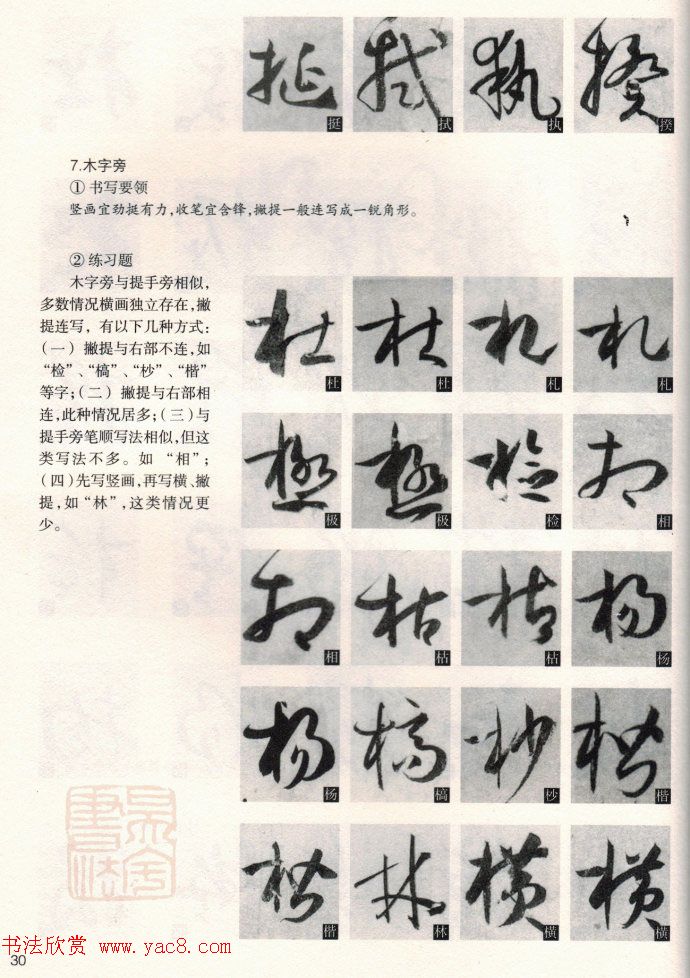 挺 拭 执 揆
7.木字旁
① 书写要领
竖画宜劲挺有力,收笔宜含锋,撇提一般连写成一锐角形。
② 练习题
木字旁与提手旁相似,
多数情况横画独立存在,撇
提连写,有以下几种方式:
(一)撇提与右部不连,如
“检”、“槁”、“杪”、“楷”
等字;(二)撇提与右部相
连,此种情况居多;(三)与
提手旁笔顺写法相似,但这
类写法不多。如“相”;
(四)先写竖画,再写横、撇
提,如“林”,这类情况更
少。
杜 杜 札 札
极 极 检 相
相 枯 枯 杨
杨 槁 杪 楷
楷 林 横 横
书法欣赏 www.yac8.com
30